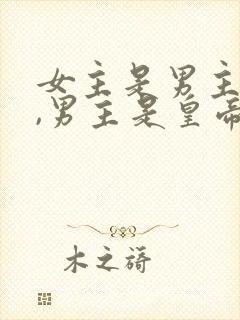 女主是男主
,男主是皇帝
木之蒟